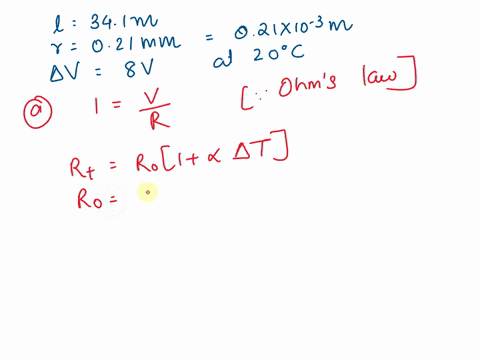 l : 34.1m
r = 0.21 mm = 0.21×10⁻³ m
ΔV = 8V at 20°C
(a) I = V/R [∵ Ohm's law]
Rt = R₀[1+ ∝ ΔT]
R₀ =